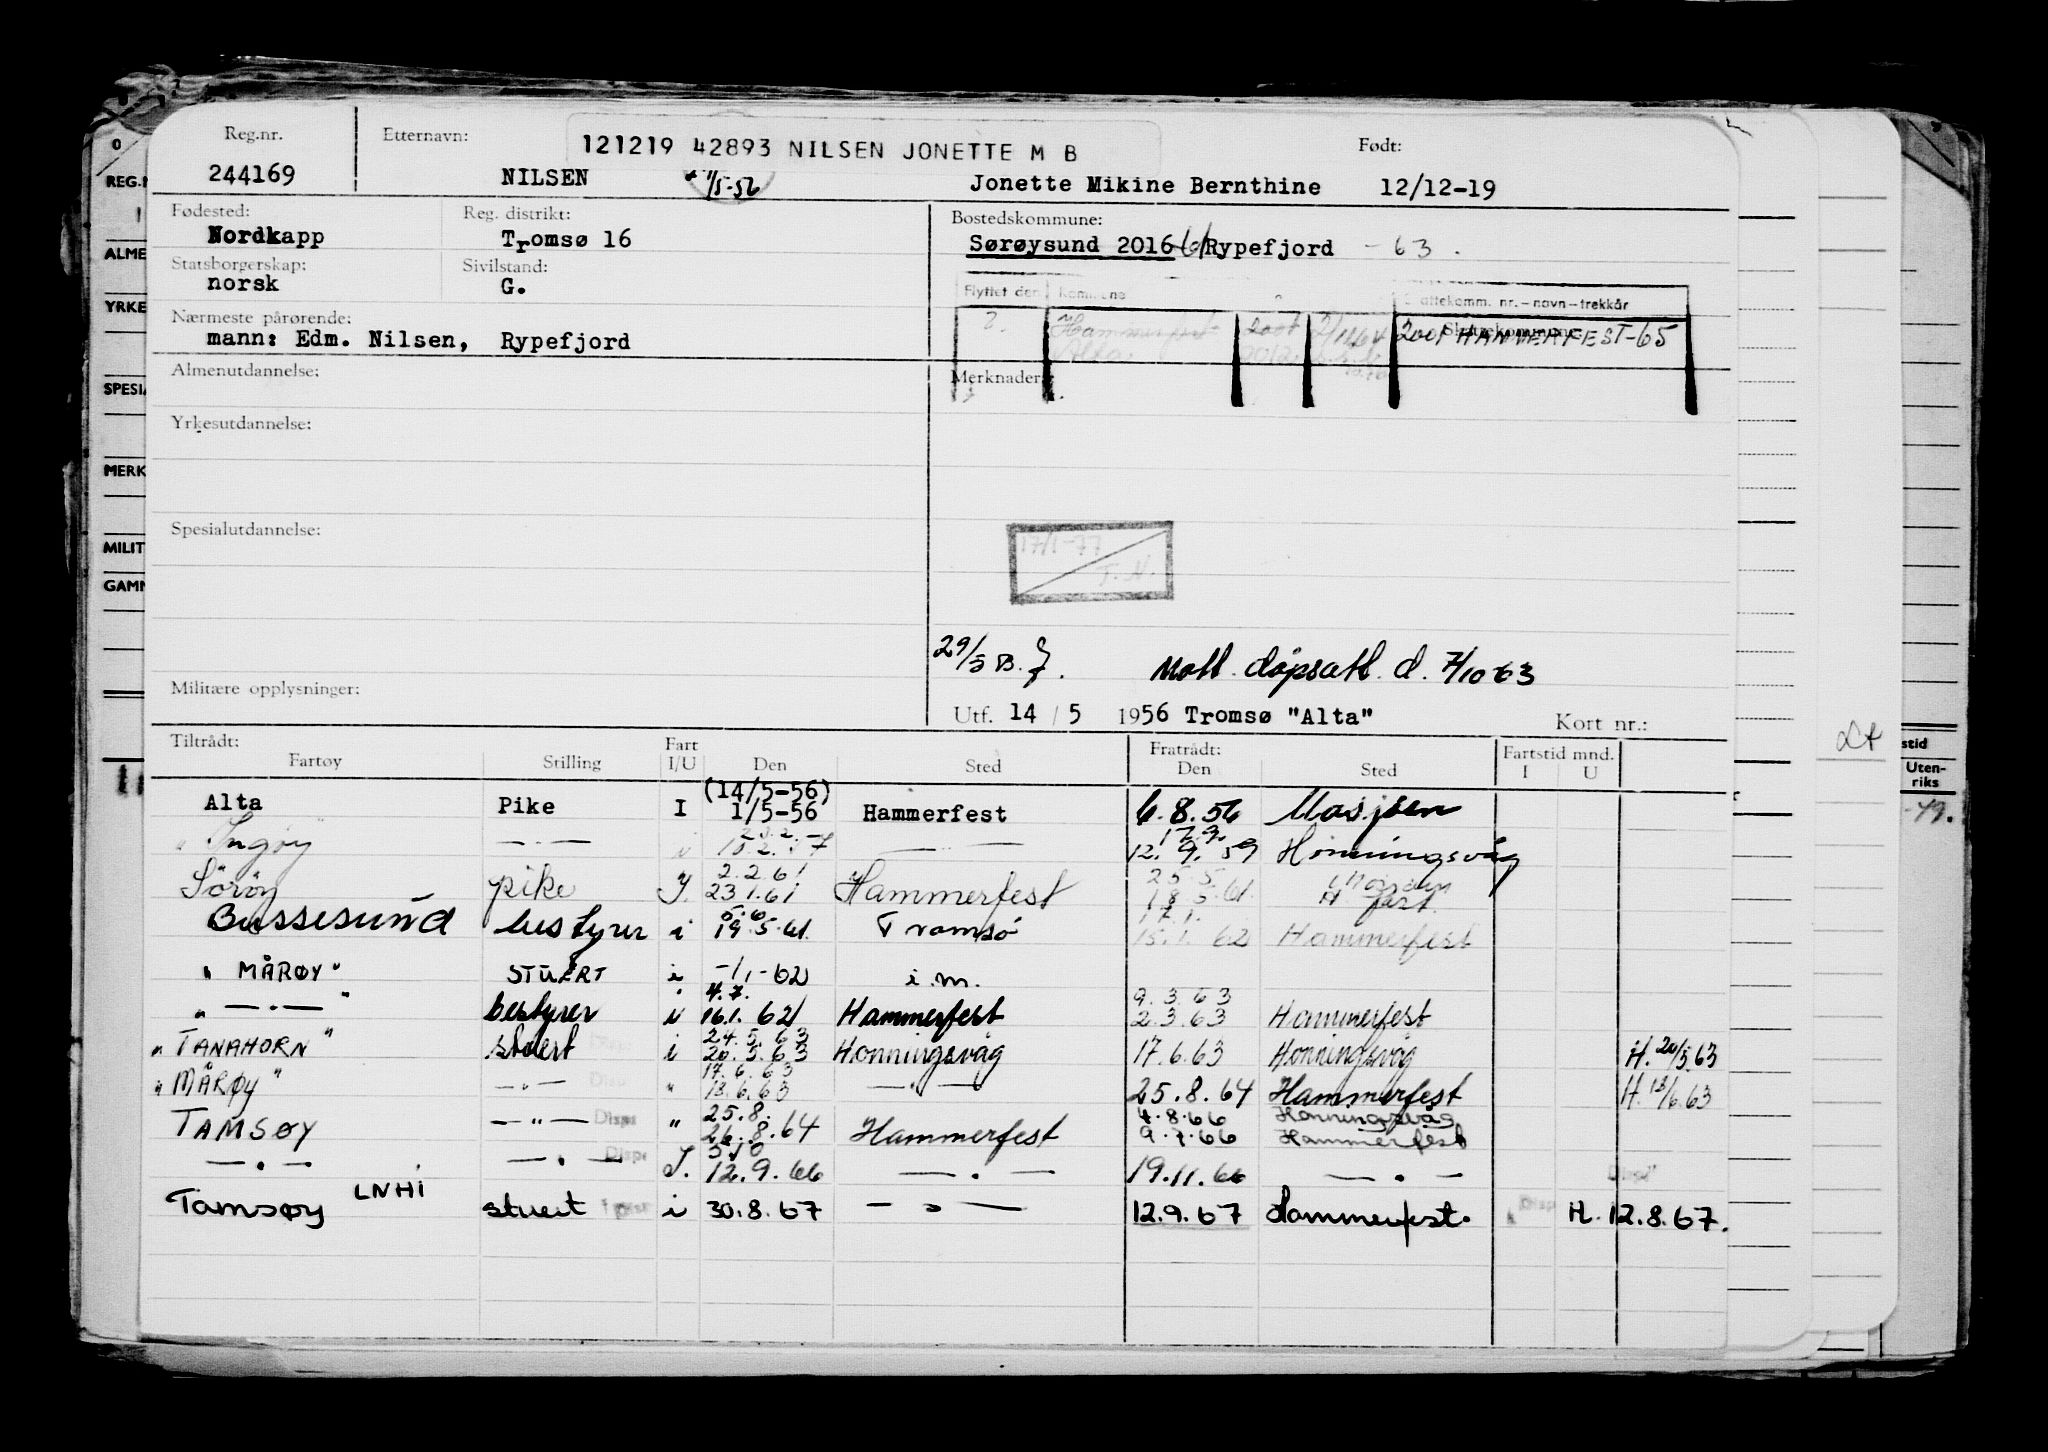 Reg.nr. Etternavn: 121219 42893 NILSEN JONETTE M B Født:
244169 NILSEN 1/5-56 Jonette Mikine Bernthine 12/12-19
Fødested: Reg. distrikt: Bostedskommune:
Nordkapp Tromsø 16 Sørøysund 2016 61 Rypefjord - 63.
Statsborgerskap: Sivilstand:
norsk G.
Flyttet den Kommune Skattekomm. nr. - navn - trekkår
Nærmeste pårørende:
mann: Edm. Nilsen, Rypefjord
Hammerfest 2001 HAMMERFEST-65
Alta
Almenutdannelse: Merknader:
Yrkesutdannelse:
Spesialutdannelse:
17/1-77
T. N.
29/5 B. Mott. dåpsatt. d. 7/10 63
Militære opplysninger:
Utf. 14 / 5 1956 Tromsø "Alta" Kort nr.:
Tiltrådt: Fart Fratrådt: Fartstid mnd.
Fartøy Stilling I/U Den Sted Den Sted I U
(14/5-56)
Alta Pike I 1/5-56 Hammerfest 6.8.56 Mosjøen
17.9.
" Ingøy — " — i — " — 12. 9. 59 Honningsvåg
2.2.61 25.5
Sörøy pike I. 23 1.61 Hammerfest 18.5.61 H.fest.
5.6 17.1.
Bussesund bestyrer i 19.5.61. Tromsö 15.1. 62 Hammerfest
" MÅRØY " STUERT i -1/1-62 i.m.
4.7. 9.3.63
" — " — " bestyrer i 16.1. 62 Hammerfest 2.3.63 Hammerfest
24.5.63
" TANAHORN " stuert i 20.5.63 Honningsvåg 17.6.63 Honningsvåg H. 20/5.63
17.6.63
" MÅRØY " — " — " 13.6.63 — " — 25.8.64 Hammerfest H. 13/6.63
25.8. 4.8.66 Honningsvåg
TAMSØY — " — Disp " 26.8.64 Hammerfest 9.7.66 Hammerfest
5.10
— " — — " — Disp I. 12.9.66 — " — 19.11.66 — " — Disp
Tamsøy LNHI stuert i 30.8.67 — " — 12.9.67 Hammerfest. H. 12.8.67.
REG.N
ALME
YRKE
SPESIA
MERK
MILIT
GAMM
stid
Uten-
riks
-49.